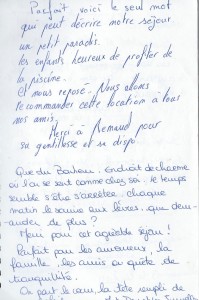 Parfait voici le seul mot
qui peut décrire notre séjour
un petit paradis.
les enfants heureux de profiter de
la piscine.
Et nous reposé. Nous allons
recommander cette location à tous
nos amis.
Merci à Arnaud pour
sa gentillesse et sa dispo
Que du Bonheur. Endroit de charme
où l'on se sent comme chez soi. le temps
semble s'être s'arrêter. chaque
matin le sourire aux lèvres. que demander
de plus ?
Merci pour cet agréable séjour !
Parfait pour les amoureux la
famille, les amis en quête de
tranquilité.
On part le cœur, la tête remplis de